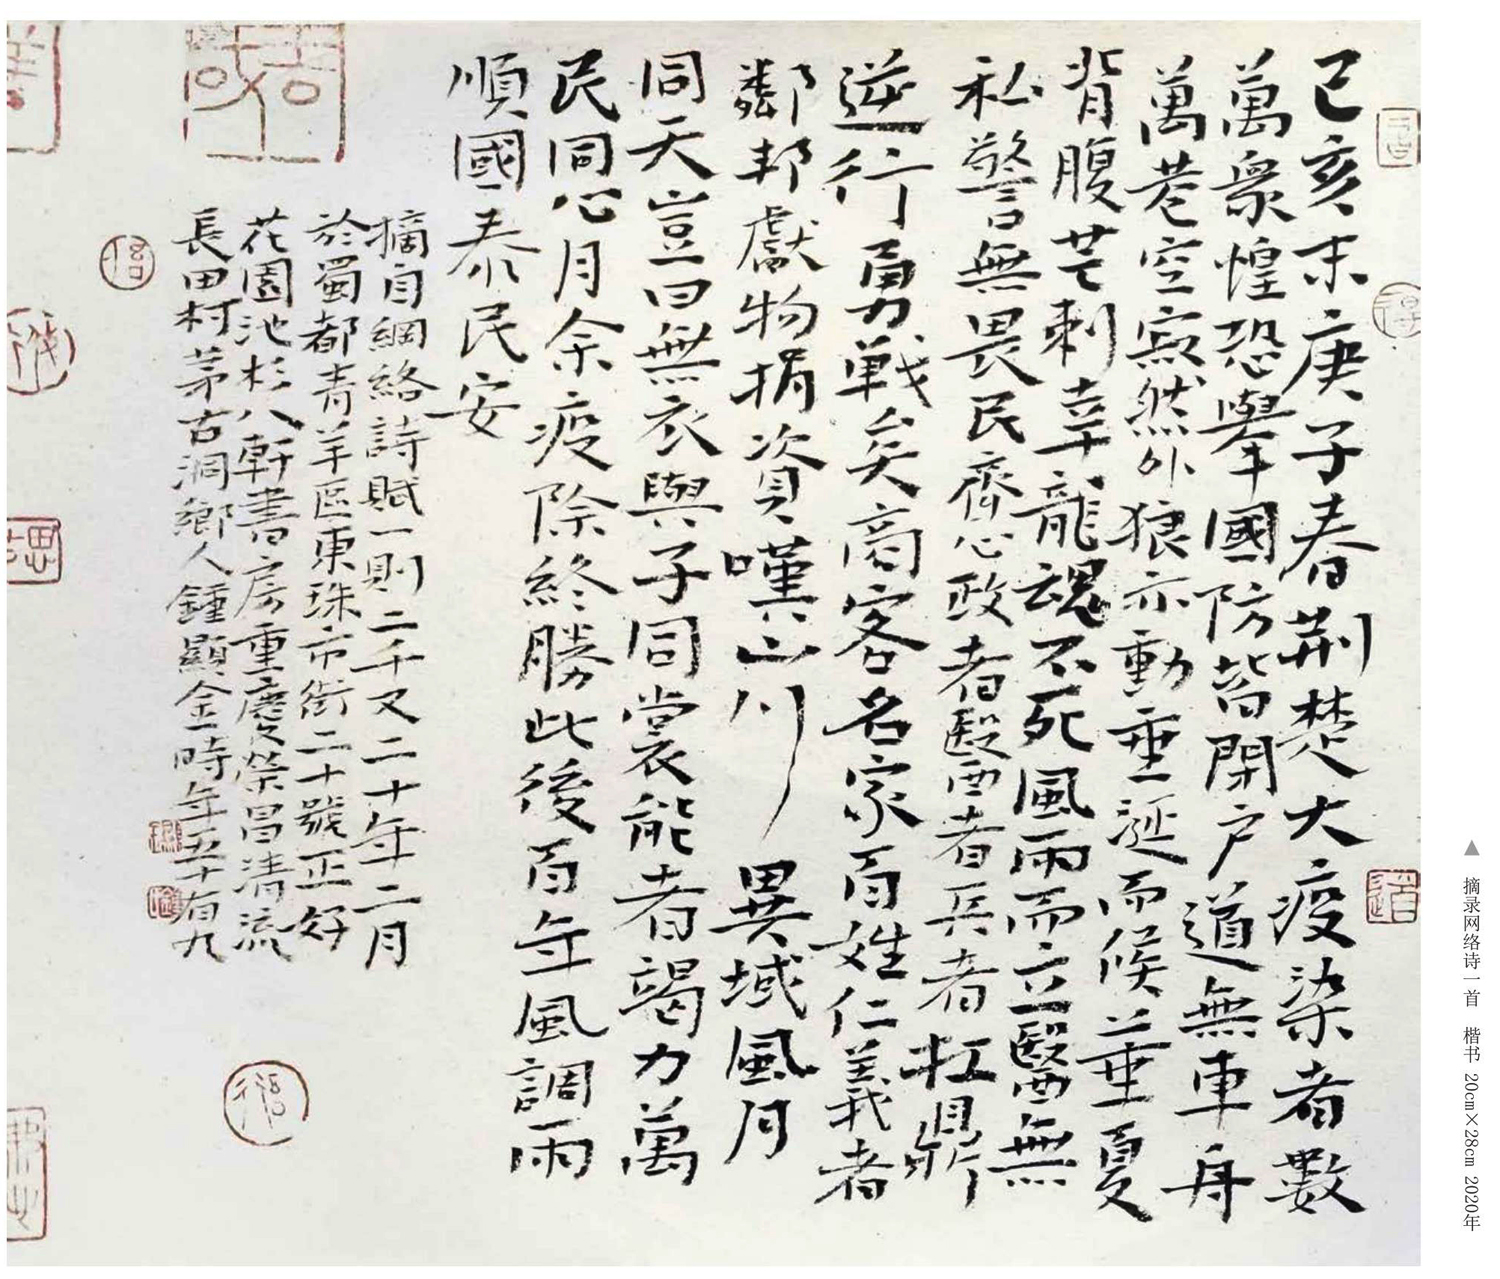 己亥末庚子春荆楚大疫染者數
萬眾惶恐舉國防皆閉户道無車舟
萬巷空寂然外狼亦動垂涎而候華夏
背腹芒刺幸龍魂不死風雨而立醫無
私警無畏民齊心政者醫者兵者扛鼎
逆行勇戰矣商客名家百姓仁義者
鄰邦獻物捐資嘆山川異域風月
同天豈曰無衣與子同裳能者竭力萬
民同心月余疫除終勝此後百年風調雨
順國泰民安
摘自網絡詩賦一則二千又二十年二月
於蜀都青羊區東珠市街二十號正好
花園池杉八軒書房重慶榮昌清流
長田村茅古洞鄉人鍾顯金時年五十有九
▲ 摘录网络诗一首 楷书 20cm×28cm 2020年